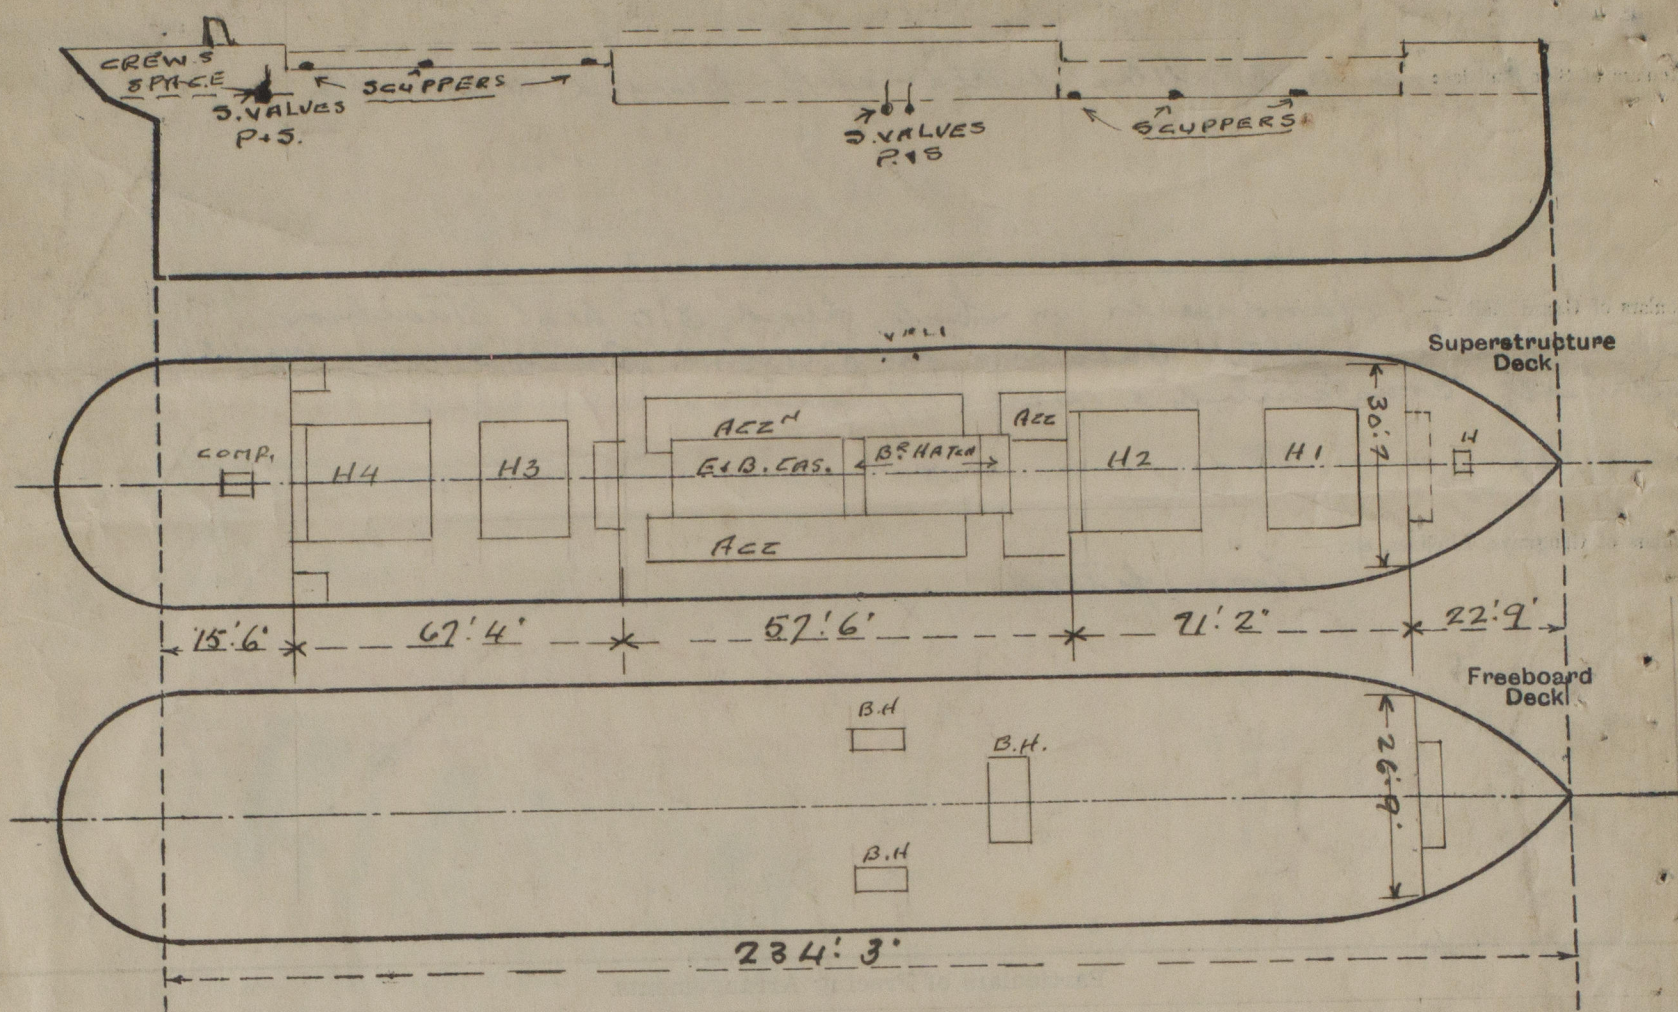 CREW.S
SPACE
S.VALVES
P+S.
SCUPPERS
S.VALVES
P.+S
SCUPPERS
Superstructure
Deck
COMP.
H4
H3
ACCN
E+B.CAS.
BR HATCH
ACC
ACC
H2
H1
H
15'.6"
67'.4"
57'.6"
71'.2"
22'.9"
Freeboard
Deck
B.H
B.H.
B.H
26'.9"
234'.3"